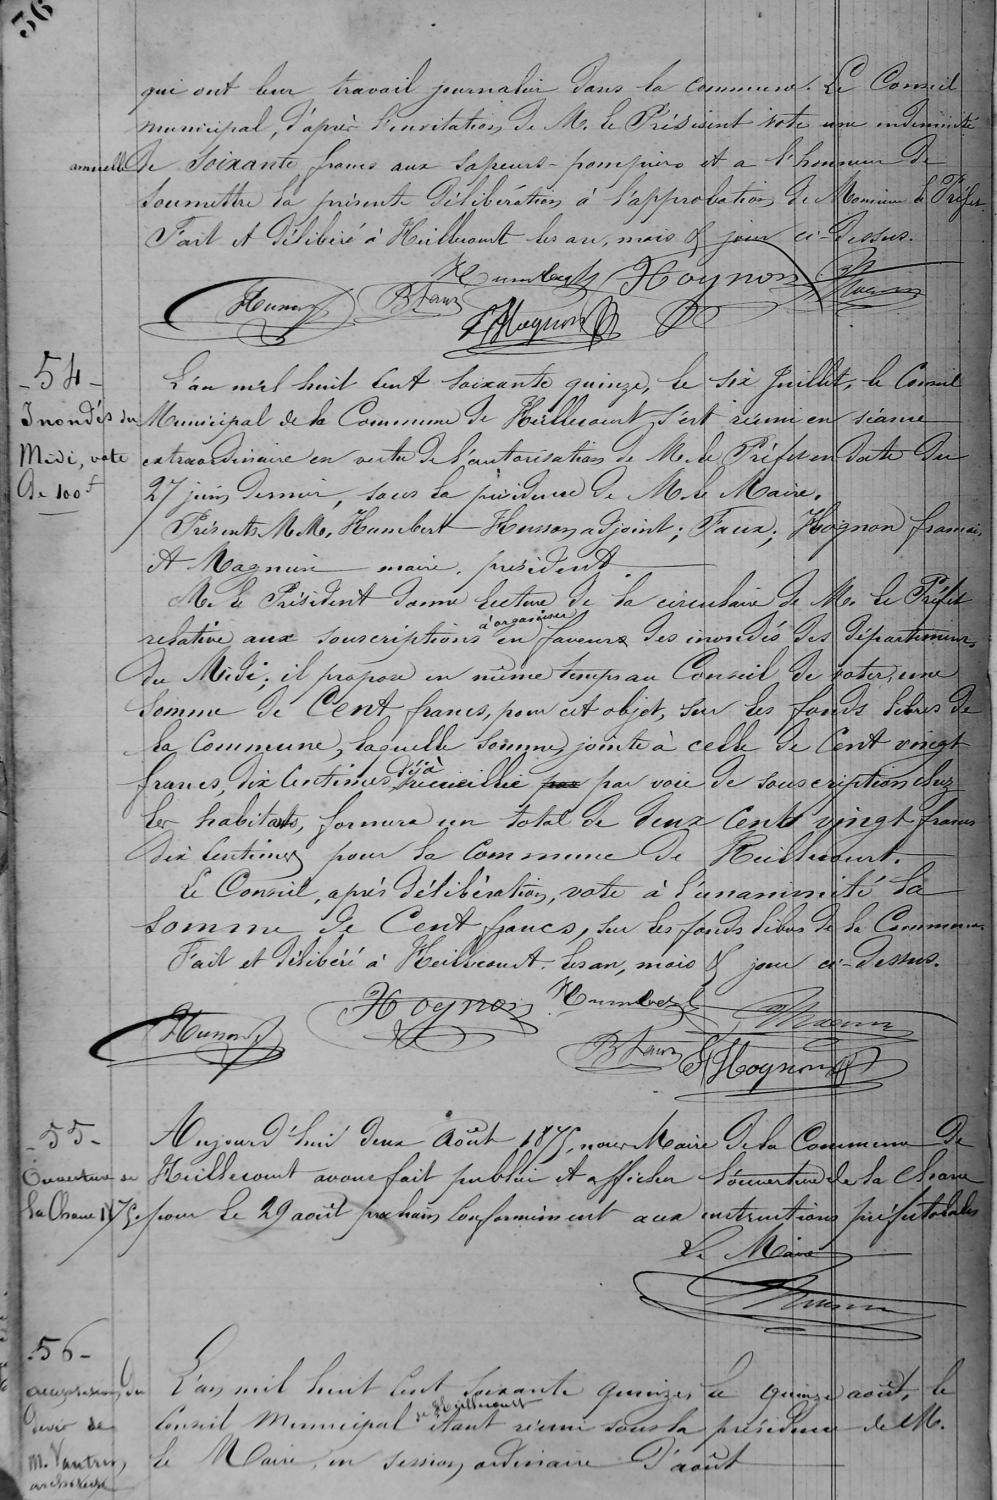 36
qui ont leur travail journalier dans la commune. Le Conseil
municipal, d'après l'invitation de M. le Président vote une indemnité
annuelle de Soixante francs aux sapeurs-pompiers et a l'honneur de
soumettre la présente délibération à l'approbation de Monsieur le Préfet.
Fait et délibéré à Heillecourt les an, mois & jour ci-dessus.
Humbert Hoognon
Husson B Faux
Hognon
- 54 -
Inondés du
Midi, vote
de 100 f
L'an mil huit cent soixante quinze, le six Juillet, le Conseil
Municipal de la Commune de Heillecourt s'est réuni en séance
extraordinaire en vertu de l'autorisation de M. le Préfet en date du
27 juin dernier, sous la présidence de M. le Maire.
Présents M.M. Humbert Husson adjoint; Faux; Hognon françois
et Magnien maire, président.
M. le Président donne lecture de la circulaire de M. le Préfet
relative aux souscriptions à organiser en faveur des inondés des départements
du Midi; il propose en même temps au Conseil de voter une
somme de Cent francs, pour cet objet, sur les fonds libres de
la commune, laquelle somme, jointe à celle de cent vingt
francs, dix centimes déjà recueillie par par voie de souscription chez
les habitants, formera un total de deux cent vingt francs
dix centimes pour la commune de Heillecourt.
Le Conseil, après délibération, vote à l'unanimité la
somme de Cent francs, sur les fonds libres de la Commune.
Fait et délibéré à Heillecourt les an, mois & jour ci-dessus.
Husson Hoognon Humbert
B Faux Hognon
- 55 -
Ouverture de
la Chasse 1875.
Aujourd'hui deux Août 1875, nous Maire de la Commune de
Heillecourt avons fait publier et afficher l'ouverture de la chasse
pour le 29 août prochain conformément aux instructions préfectorales
Le Maire
- 56 -
du
devis de
M. Vautrin
architecte
L'an mil huit cent soixante quinze, le quinze août, le
Conseil Municipal de Heillecourt étant réuni sous la présidence de M.
le Maire, en session ordinaire d'août